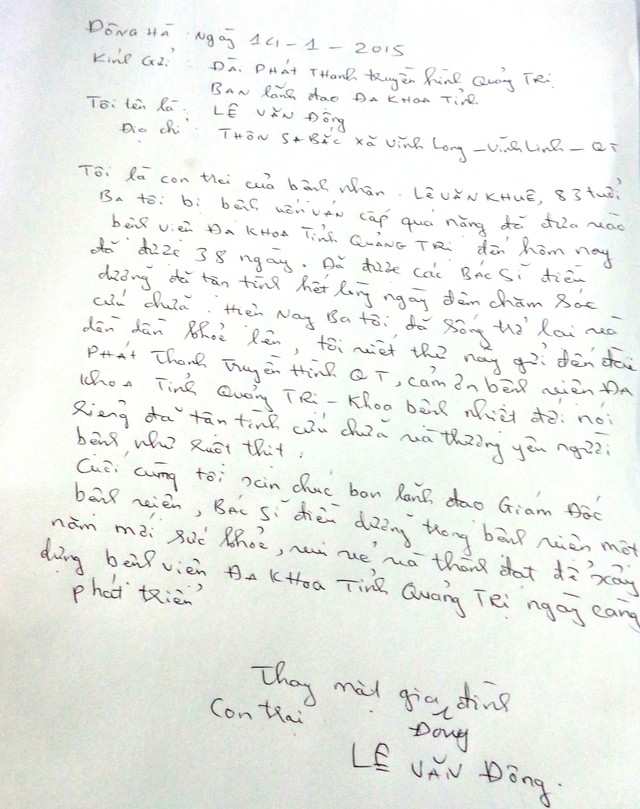 ĐÔNG HÀ Ngày 14 - 1 - 2015
Kính Gửi: ĐÀI PHÁT THanh truyền hình Quảng TRị
BAN lãnh đạo ĐA KHOA Tỉnh
Tôi tên là: LÊ VĂN Đông
Địa chỉ THÔN SA BẮC Xã Vĩnh Long - Vĩnh Linh - QT
Tôi là con trai của bệnh nhân. Lê VĂN KHUÊ, 83 tuổi
BA tôi bị bệnh uốn VÁN cấp quá nặng đã đưa vào
bệnh viện ĐA KHOA Tỉnh QUẢNG TRị đến hôm nay
đã được 38 ngày. Đã được các BÁC Sĩ điều
dưỡng đã tận tình hết lòng ngày đêm chăm sóc
cứu chữa. Hiện Nay Ba tôi đã sống trở lại và
dần dần khoẻ lên, tôi viết thư này gửi đến đài
PHÁT Thanh Truyền Hình QT, cảm ơn bệnh viện ĐA
khoa Tỉnh Quảng TRị - Khoa bệnh nhiệt đới nói
riêng đã tận tình cứu chữa và thương yêu người
bệnh như ruột thịt.
Cuối cùng tôi xin chúc ban lãnh đạo Giám Đốc
bệnh viện, BÁC Sĩ điều dưỡng trong bệnh viện một
năm mới sức khoẻ, vui vẻ và thành đạt để xây
dựng bệnh viện ĐA KHOA TỈNH QUẢNG TRị ngày càng
phát triển
Thay mặt gia đình
Con trai
Đông
LÊ VĂN Đông.